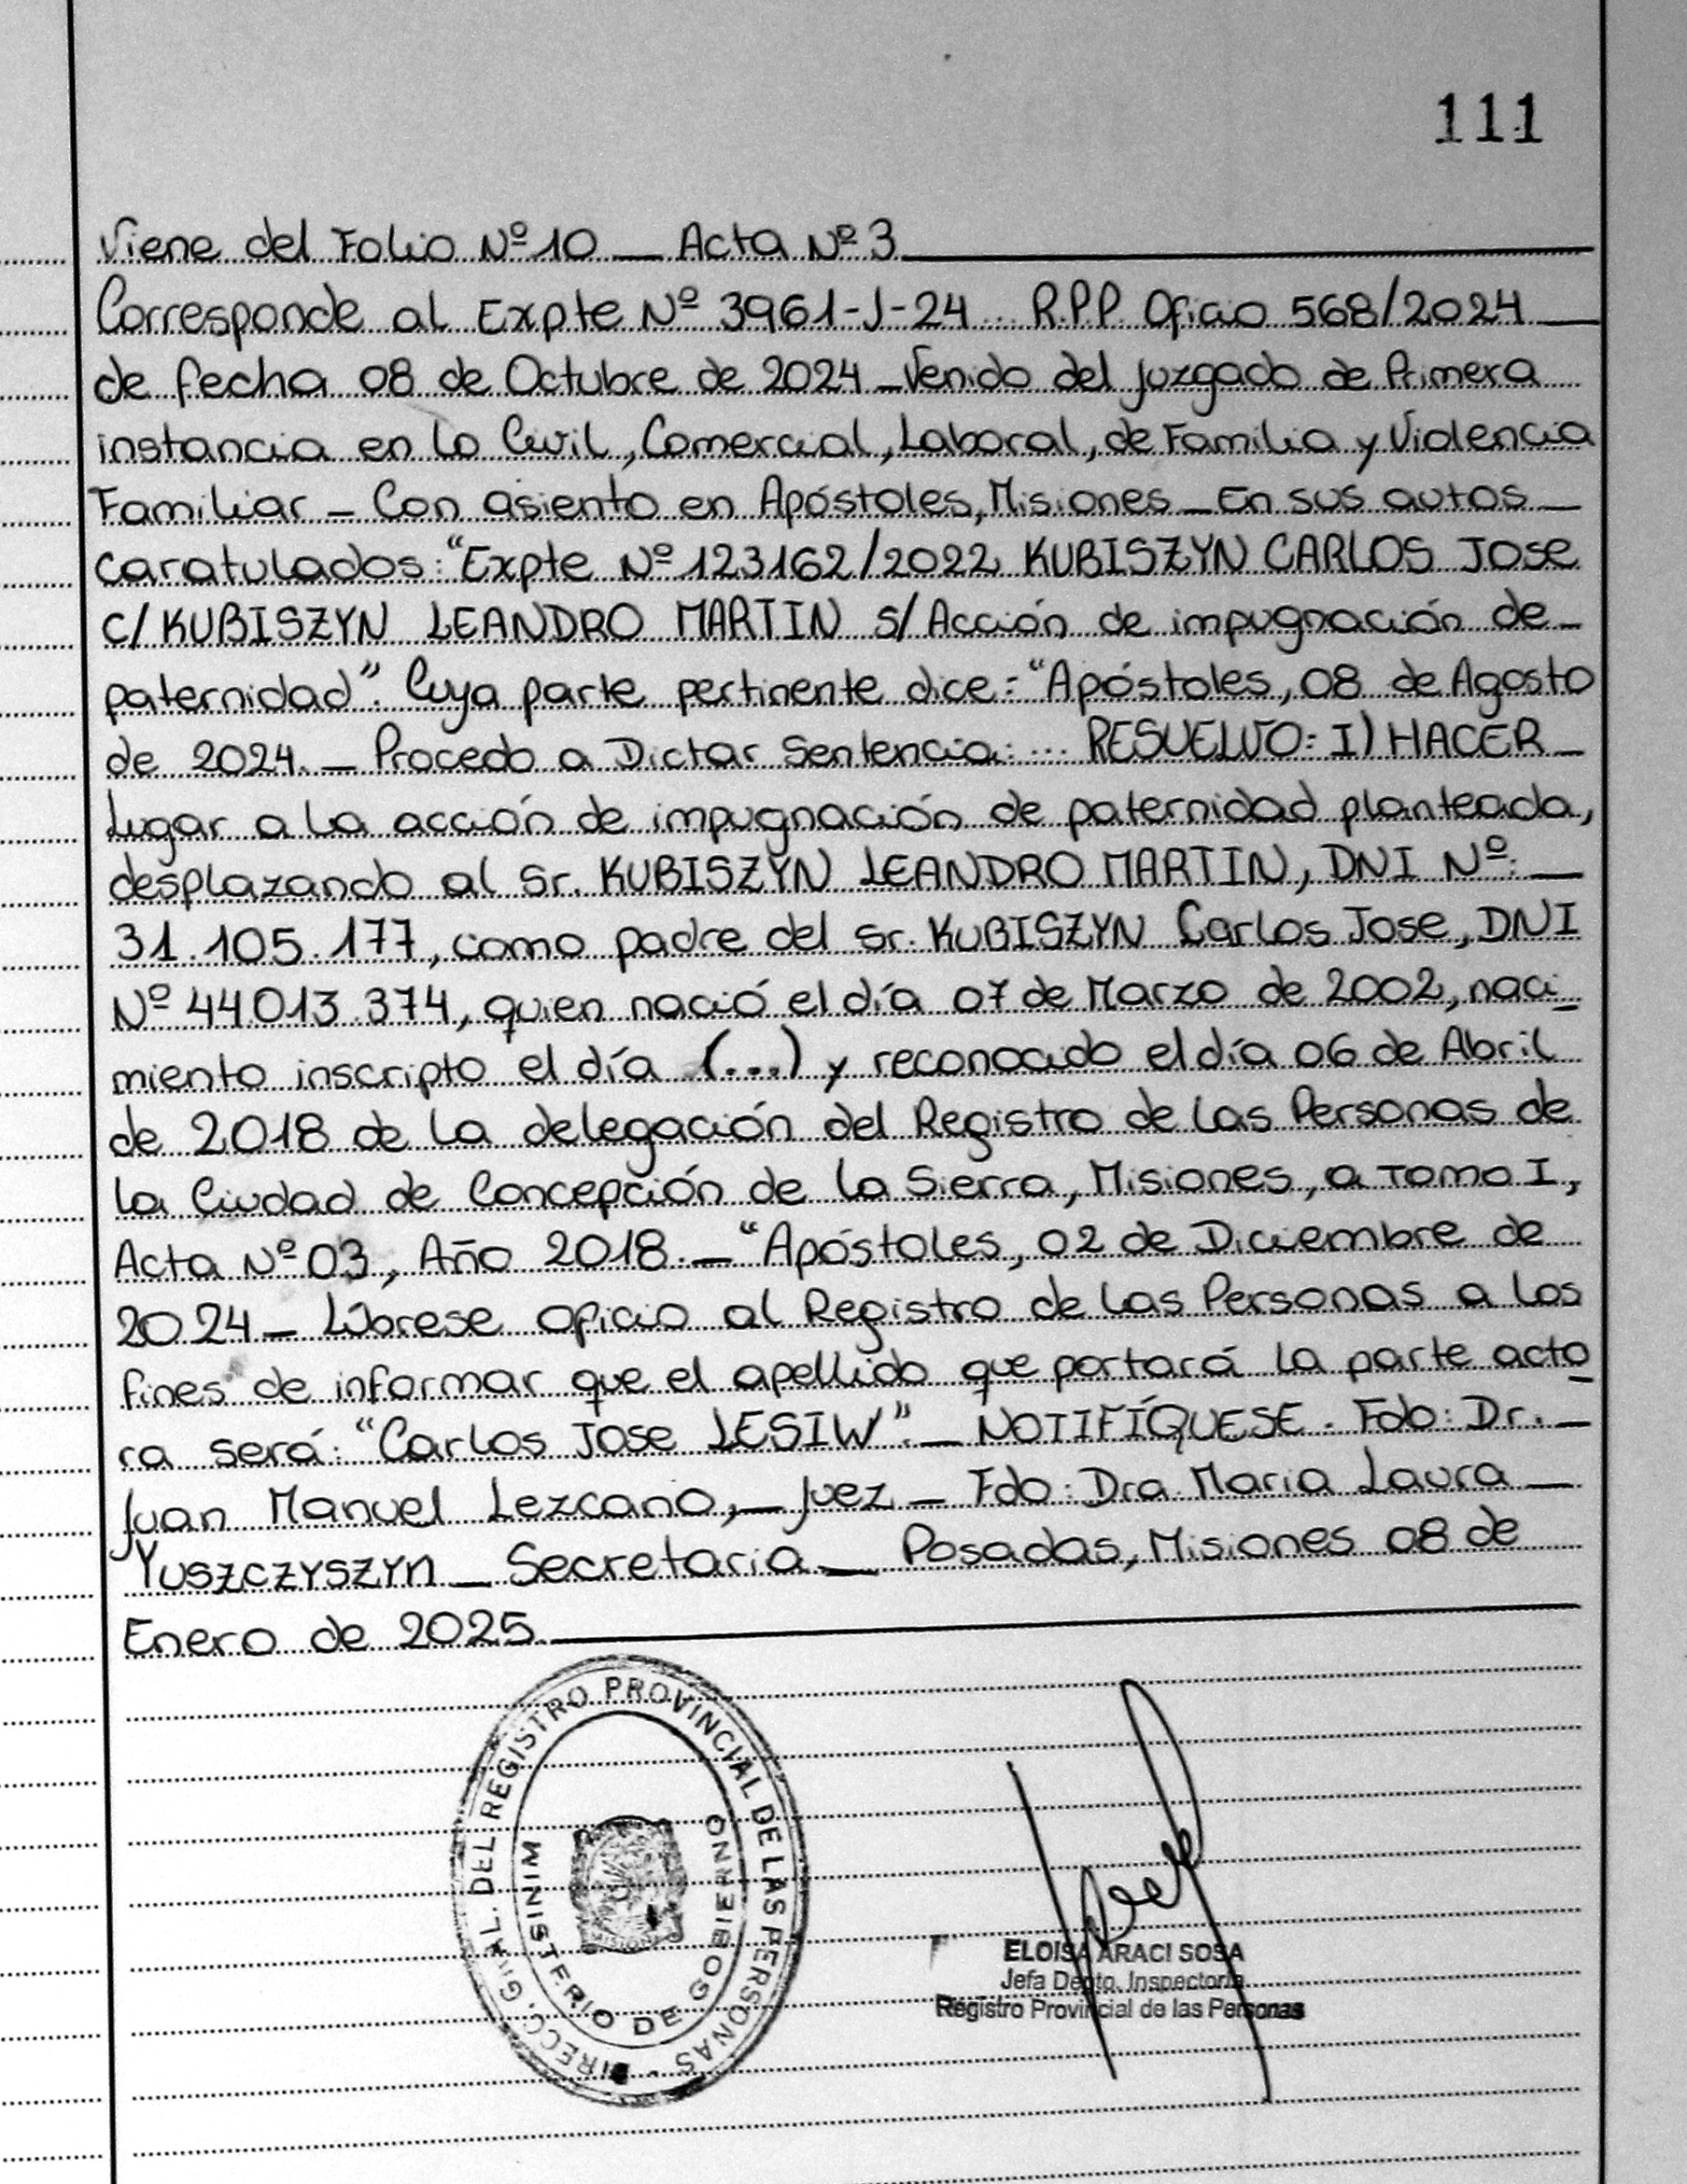 111
Viene del Folio Nº 10 _ Acta Nº 3
Corresponde al Expte Nº 3961-J-24... R.P.P. Oficio 568/2024
de fecha 08 de Octubre de 2024 _ Venido del Juzgado de Primera
instancia en lo Civil, Comercial, Laboral, de Familia y Violencia
Familiar _ Con asiento en Apóstoles, Misiones _ En sus autos _
caratulados: "Expte Nº 123162/2022 KUBISZYN CARLOS JOSE
C/ KUBISZYN LEANDRO MARTIN S/ Acción de impugnación de _
paternidad". Cuya parte pertinente dice: "Apóstoles, 08 de Agosto
de 2024. _ Procedo a Dictar Sentencia: ... RESUELVO: I) HACER _
Lugar a la acción de impugnación de paternidad planteada,
desplazando al Sr. KUBISZYN LEANDRO MARTIN, DNI Nº: _
31.105.177, como padre del Sr. KUBISZYN Carlos Jose, DNI
Nº 44.013.374, quien nació el día 07 de Marzo de 2002, naci_
miento inscripto el día (...) y reconocido el día 06 de Abril
de 2018 de la delegación del Registro de las Personas de
la Ciudad de Concepción de la Sierra, Misiones, a Tomo I,
Acta Nº 03, Año 2018. _ "Apóstoles, 02 de Diciembre de
2024 _ Líbrese oficio al Registro de las Personas a los
fines de informar que el apellido que portará la parte acto_
ra será: "Carlos Jose LESIW". _ NOTIFÍQUESE. Fdo: Dr. _
Juan Manuel Lezcano, _ Juez _ Fdo: Dra. Maria Laura _
YUSZCZYSZYN _ Secretaria _ Posadas, Misiones 08 de
Enero de 2025.
DIRECC. GRAL. DEL REGISTRO PROVINCIAL DE LAS PERSONAS -
MINISTERIO DE GOBIERNO
MISIONES
ELOISA ARACI SOSA
Jefa Depto. Inspectoría
Registro Provincial de las Personas